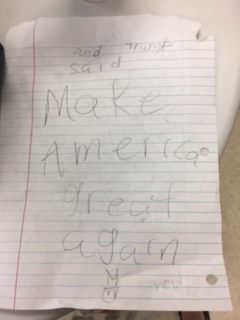 and trump
said
Make
America
great
again